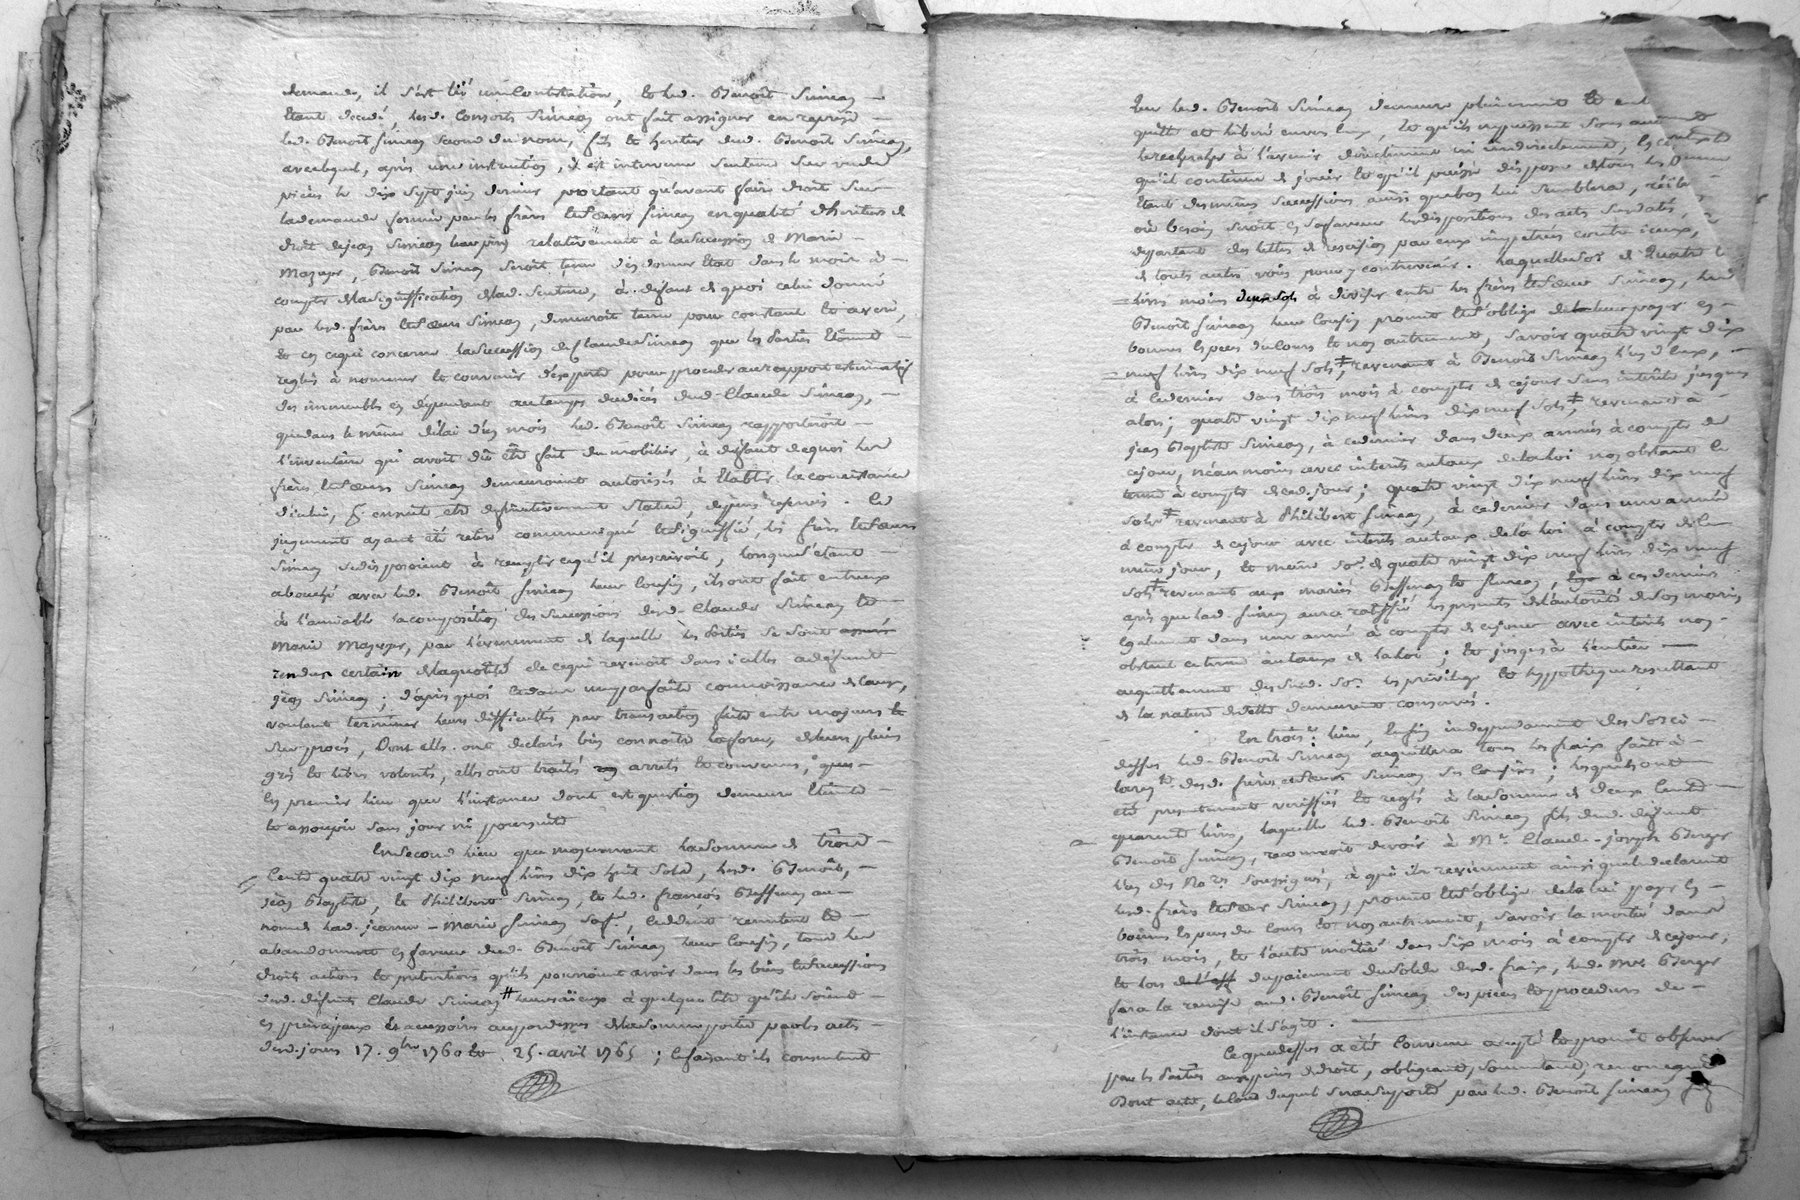 demande, il s'est lié une Contestation, led. Benoît Simean
Etant decedé, lesd. Consorts Simean ont fait assigner en reprise
led. Benoît Simean second du nom, fils et heritier dud. Benoît Simean,
avec lequel, après une instruction, il est intervenu sentence sur vu de
pièces le dix sept juin dernier portant qu'avant faire droit sur
la demande formée par les frères et sœurs Simean en qualité d'heritiers de
droit de jean Simean leur père relativement à la succession de Marie
Mazuyer, Benoît Simean seroit tenu d'en donner Etat dans le mois à
compter de la signiffication de lad. sentence, à defaut de quoi celui donné
par lesd. frères et sœurs Simean, demeuroit tenu pour constant et averé,
et en ce qui concerne la succession de Claude Simean que les parties Etoient
reglés à nommer et convenir d'experts pour proceder au rapport estimatif
des immeubles en dépendant au temps du décès dud. Claude Simean,
que dans le même délai d'un mois led. Benoît Simean rapporteroit
l'inventaire qui avoit dû être fait du mobilier, à défaut de quoi les
frères et sœurs Simean demeuroient autorisés à Etablir la consistance
d'icelui, p.r ensuite être definitivement statué, dépens reservés. Ce
jugement ayant été retiré communiqué et signiffié, les frères et sœurs
Simean se disposoient à remplir ce qu'il prescrivoit, lorsque s'étant
abouché avec led. Benoît Simean leur Cousin, ils ont fait entr'eux
à l'amiable la composition des successions desd. Claude Simean et
Marie Mazuyer, par l'évenement de laquelle les parties se sont
rendus certain de la quotité de ce qui revenoit dans icelles a defunt
jean Simean; d'après quoi ladame une parfaite connoissance de cause,
voulant terminer leurs difficultés par transaction faite entre majeurs et
sur procès, Dont elles ont declaré bien connoître la force, de leur plein
gré et libre volonté, elles ont traité arrêté et convenu, que
En premier lieu que l'instance dont est question demeure Eteinte
et assoupie sans jour ni poursuite
En second lieu que moyennant la somme de trois
Cents quatre vingt dix neuf livres dix huit sols, lesd. Benoît,
jean Baptiste, et Philibert Simean, et led. françois Buffenay au
nom de lad. jeanne-Marie Simean sa f.e, cedent remettent et
abandonnent en faveur dud. Benoît Simean leur Cousin, tous les
droits actions et pretentions qu'ils pouroient avoir dans les biens et successions
desd. défunts Claude Simean # leurs aïeux à quelque titre qu'ils soient
en principaux et accessoires au par dessus de la somme portée par les actes
desd. jours 17. 9bre 1760 et 25. avril 1765; Ce faisant ils consentent
que led. Benoît Simean demeure pleinement et
quitte et liberé envers eux, et qu'ils ne puissent sous aucun
le rechercher à l'avenir directement ni indirectement,
qu'il continue de jouir et qu'il puisse disposer de tous les biens
Etant des mêmes successions ainsi que bon lui semblera,
où besoin seroit en sa faveur les dispositions des actes susdatés,
departant des lettres de rescision par eux impetrées contre iceux,
de toute autre voie pour y contrevenir. Laquelle so.e de Quatre
livres moins deux sols à diviser entre les frères et sœur Simean, led.
Benoît Simean leur Cousin promet et s'oblige de leur payer en
bonnes Especes du cours et non autrement, savoir quatre vingt dix
neuf livres dix neuf sols, ‡ revenant à Benoît Simean l'un d'eux,
à ce dernier dans trois mois à compter de ce jour sans intérêts jusques
alors; quatre vingt dix neuf livres dix neuf sols, ‡ revenant à
jean Baptiste Simean, à ce dernier dans deux années à compter de
ce jour, néanmoins avec intérêts au taux de la loi non obstant le
terme à compter de ced. jour; quatre vingt dix neuf livres dix neuf
sols ‡ revenant à Philibert Simean, à ce dernier dans une année
à compter de ce jour avec intérêts au taux de la loi à compter de le
même jour, et même so.e de quatre vingt dix neuf livres dix neuf
sols ‡ revenant aux mariés Buffenay et Simean, à ces derniers
après que lad. Simean aura ratiffié les presentes de l'autorité de son mari
Egalement dans une année à compter de ce jour avec intérêts non
obstant ce terme au taux de la loi; et jusqu'à l'entier
acquittement des susd. so.es les privilege et hypotheque resultant
de la nature de dette demeurent conservés.
En trois.e lieu, Enfin independament des so.es ci
dessus led. Benoît Simean acquittera tous les frais faits à
la req.te desd. frères et sœurs Simean ses Cousins; lesquels ont
été presentement verifiés et reglés à la somme de deux Cents
quarante livres, laquelle led. Benoît Simean fils dud. défunt
Benoît Simean, reconnoit devoir à M.e Claude-joseph Berger
l'un des No.res soussignés, à qui ils reviennent ainsi que le declarent
lesd. frères et sœur Simean, promet et s'oblige de la lui payer En
bonnes Especes du cours et non autrement, savoir la moitié dans
trois mois, et l'autre moitié dans six mois à compter de ce jour,
et lors du paiement du solde desd. frais, led. M.e Berger
fera la remise aud. Benoît Simean des pieces et procedures de
l'instance dont il s'agit.
Ce que dessus a été Convenu accepté et promis observer
par les parties aux peines de droit, obligeant, soumettant, renonçant
Dont acte, le coût duquel sera supporté par led. Benoît Simean